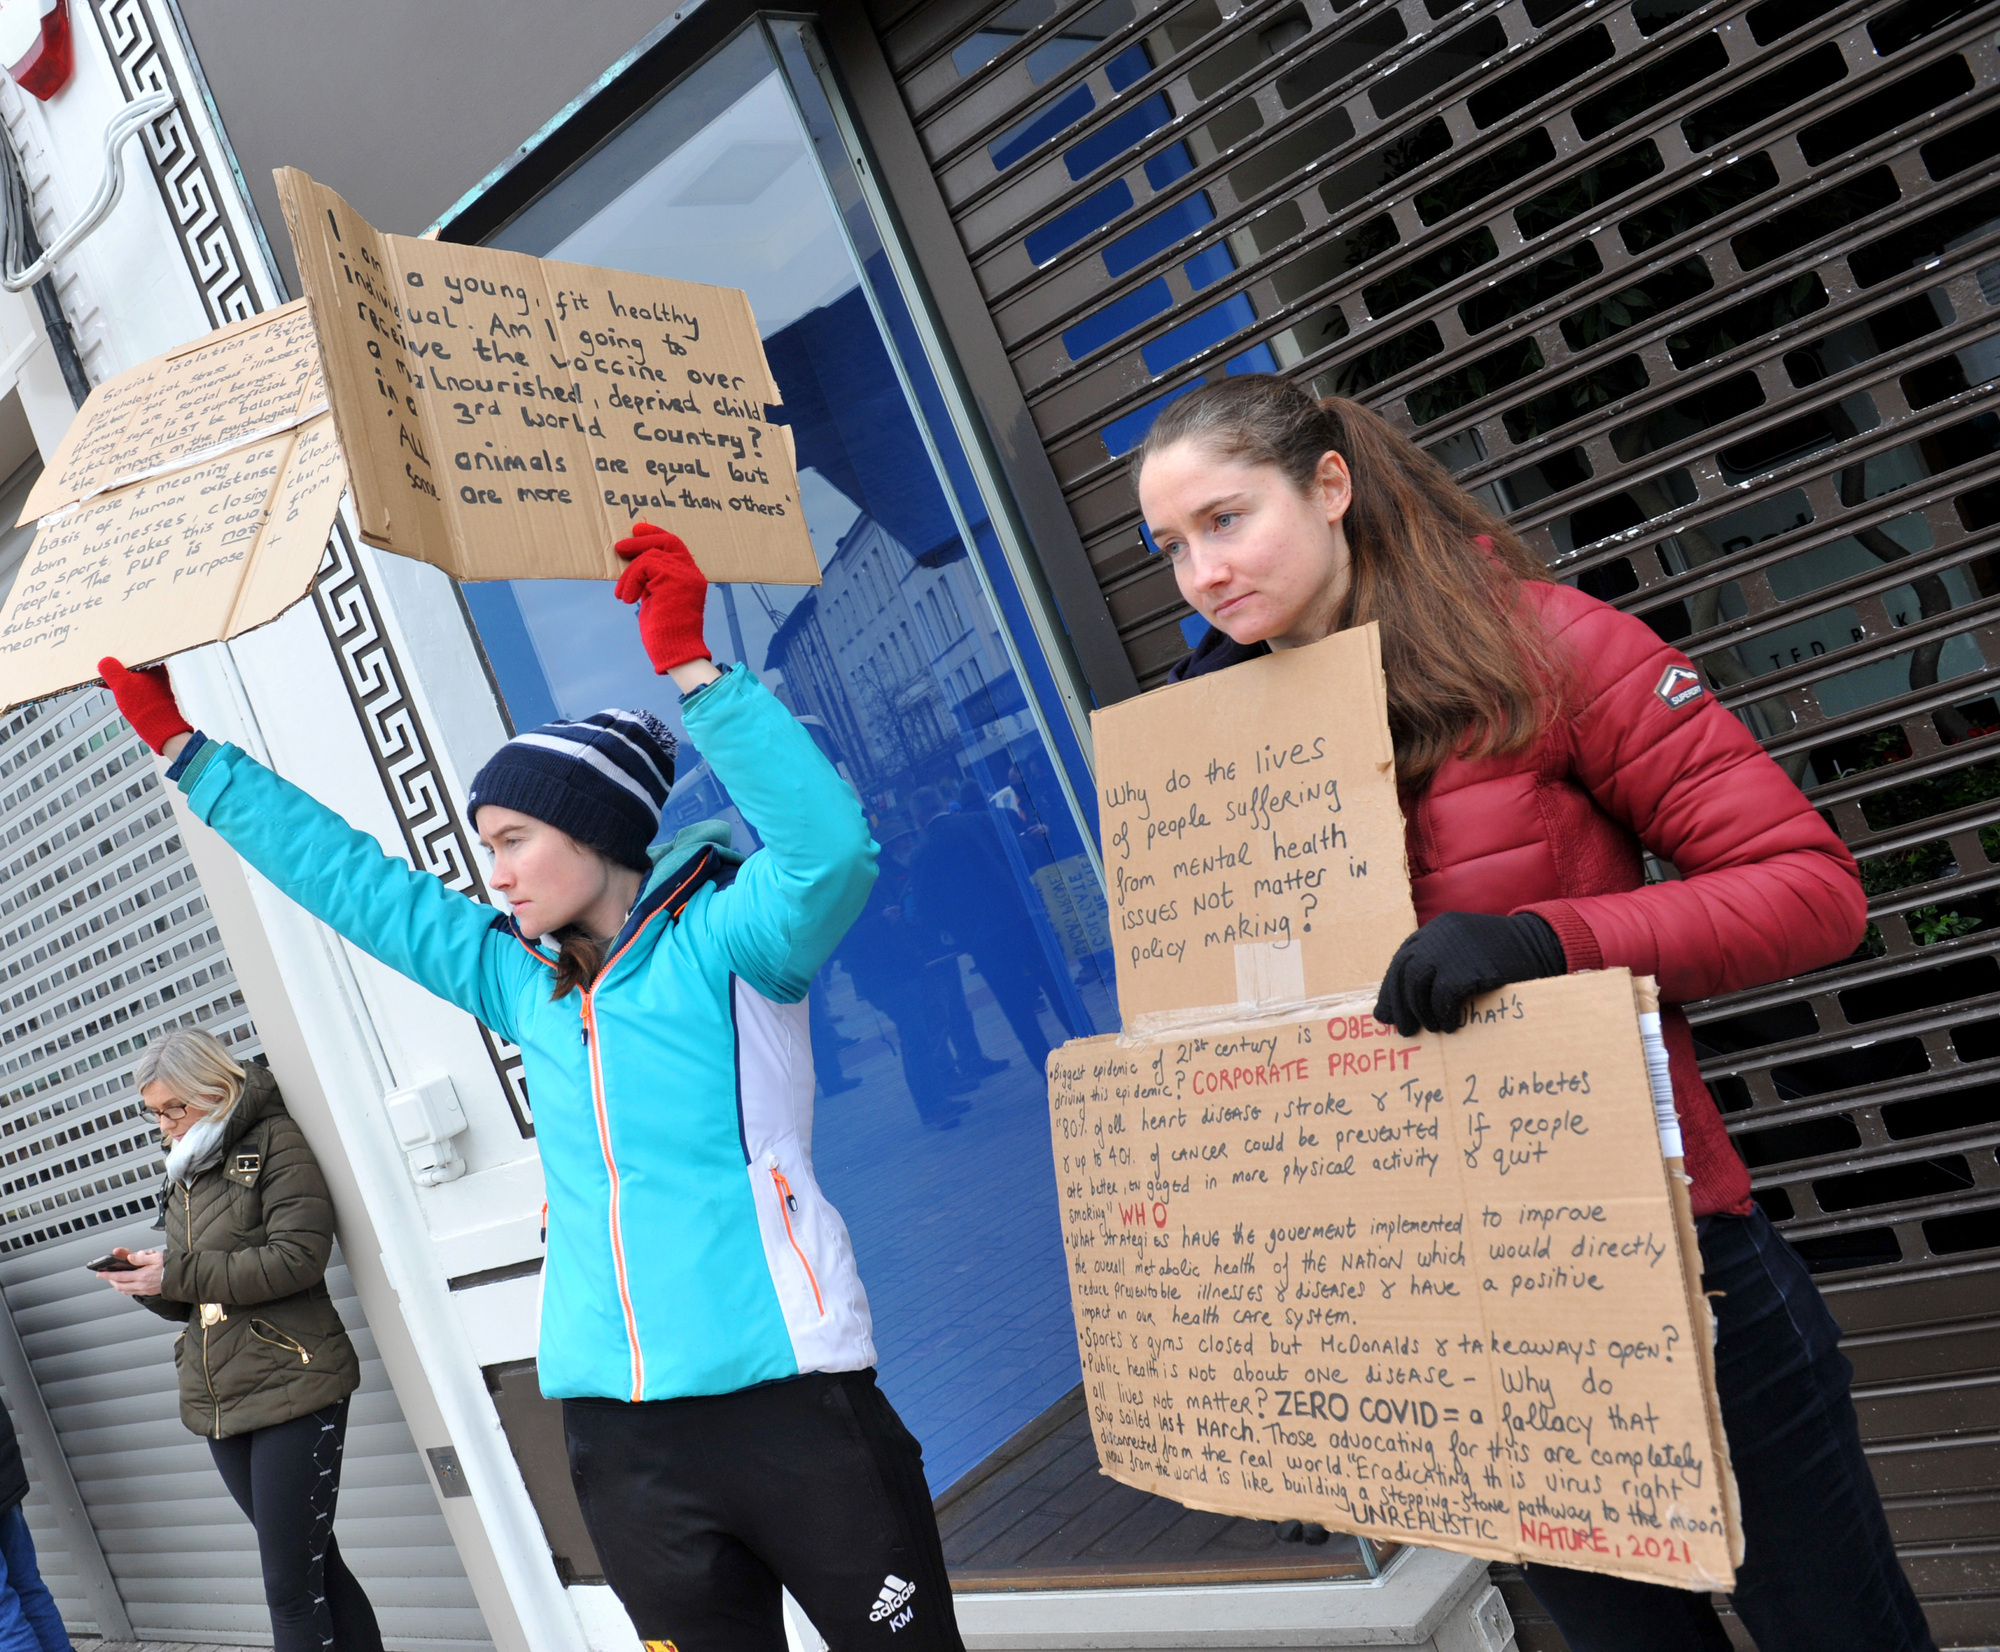 Social isolation = Psyc
Psychological stress is a kno
factor for numerous illnesses (e
Humans are social beings. St
+ stay safe is a superficial
Lockdowns MUST be balanced
the impact on the psychological he
of the population
Purpose + meaning are the
basis of human existense. Closi
down businesses, closing church
no sport takes this away from
people. The PUP is not a
substitute for purpose +
meaning.
I am a young, fit healthy
individual. Am I going to
receive the vaccine over
a malnourished, deprived child
in a 3rd World Country?
'ALL animals are equal but
Some are more equal than others"
Why do the lives
of people suffering
from mental health
issues not matter in
policy making?
•Biggest epidemic of 21st century is OBESI What's
driving this epidemic? CORPORATE PROFIT
"80% of all heart disease, stroke & Type 2 diabetes
& up to 40% of cancer could be prevented If people
ate better, engaged in more physical activity & quit
smoking" WHO
•What strategies have the goverment implemented to improve
the overall metabolic health of the nation which would directly
reduce preventable illnesses & diseases & have a positive
impact in our health care system.
•Sports & gyms closed but McDonalds & takeaways open?
•Public health is not about one disease – Why do
all lives not matter? ZERO COVID = a fallacy that
ship sailed last March. Those advocating for this are completely
disconnected from the real world. "Eradicating this virus right
now from the world is like building a stepping-stone pathway to the moon"
UNREALISTIC NATURE, 2021
SUPERDRY
adidas
KM